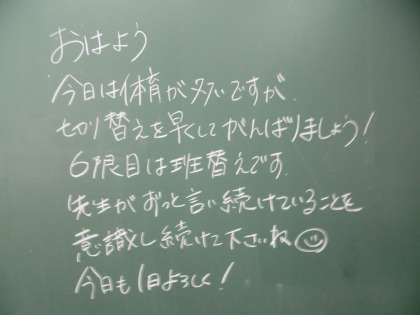 おはよう
今日は体育が外ですが、
切り替えを早くしてがんばりましょう!
6限目は班替えです.
先生がずっと言い続けていることを
意識し続けて下さいね☺
今日も1日よろしく!